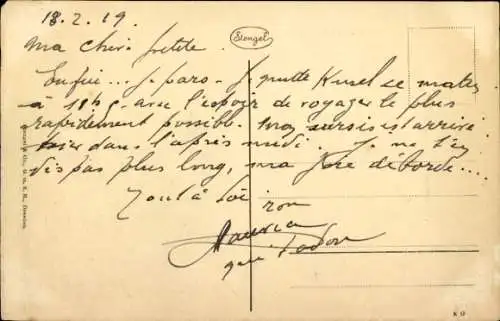 18.2.19.
Stengel
Ma chère petite
Enfin... Je pars. Je quitte Kusel ce matin
à 11h avec l'espoir de voyager le plus
rapidement possible. Mon sursis est arrivé
hier dans l'après midi. Je ne t'en
dis pas plus long, ma joie déborde....
Tout à toi ton
Maurice
qui t'adore
Stengel & Co., G. m. b. H., Dresden.